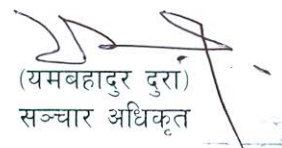 (यमबहादुर दुरा)
सञ्चार अधिकृत